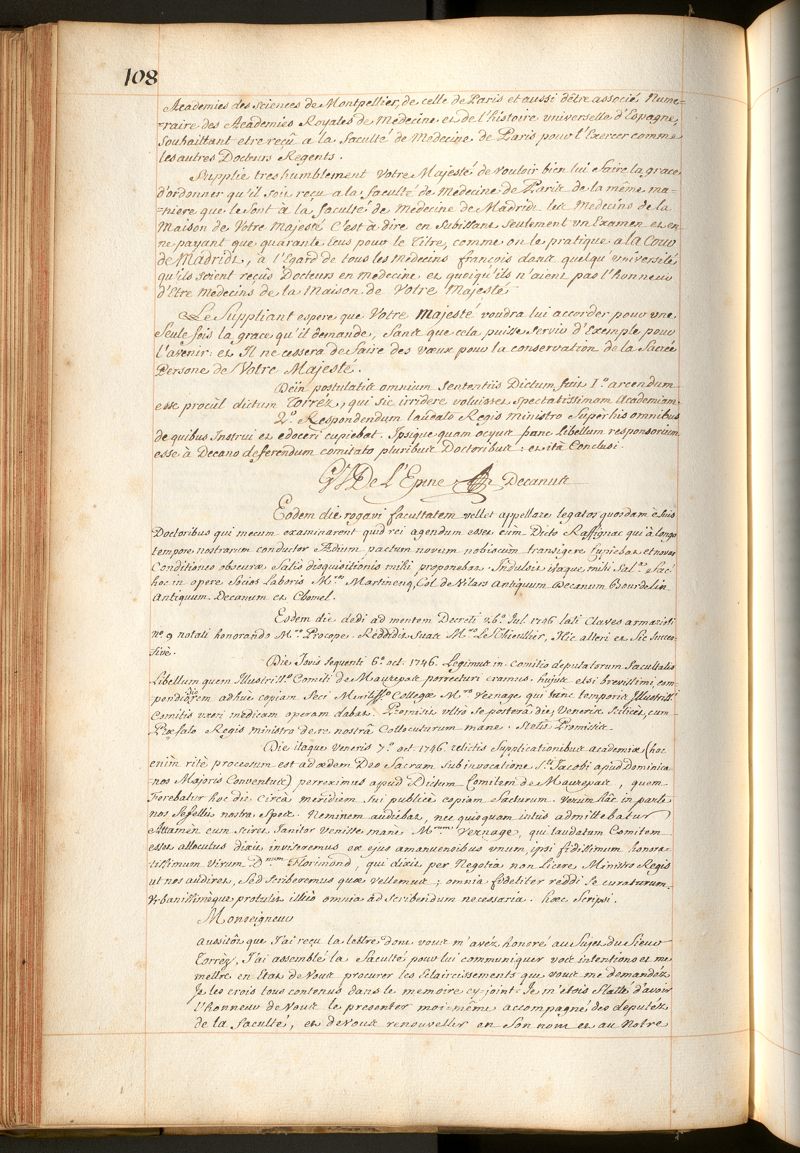 108
Academies des Sciences de Montpellier, de celle de Paris et aussi d'être associé Nume-
raire des Academies Royales de Medecine et de l'histoire universelle d'Espagne,
Souhaittant etre reçû a la faculté de Medecine de Paris pour l'Exercer comme
les autres Docteurs Regents.
Supplie tres humblement Votre Majesté de vouloir bien lui faire la grace
d'ordonner qu'il soit reçu a la faculté de Medecine de Paris de la même ma-
niere que le sont à la faculté de Medecine de Madrid les Medecins de la
Maison de Votre Majesté C'est à dire en Subissant Seulement un Examen et en
ne payant que quarante Ecus pour le Titre, comme on le pratique a la Cour
de Madrid, a l'Egard de tous les Medecins françois dans quelqu'université
qu'ils soient reçûs Docteurs en Medecine et quoiqu'ils n'aient pas l'honneur
d'Etre Medecins de la Maison de Votre Majesté
Le Suppliant espere que Votre Majesté voudra lui accorder pour une
Seule fois la grace qu'il demande, Sans que cela puisse servir d'Exemple pour
l'avenir et Il ne cessera de faire des vœux pour la conservation de la Sacrée
Persone de Votre Majesté.
Dein postulatis omnium Sententiis Dictum fuit 1.º arcendum
esse procùl dictum Torréz, qui sic irridere voluisset Spectatissimam Academiam
2.º Respondendum laudato Regis ministro Super his omnibus
de quibus Instrui et edoceri cupiebat. Ipsique quam ocyus hanc Libellum responsorium
esse à Decano deferendum comitato pluribus Doctoribus: et ità Conclusi
De L'Epine Decanus
Eodem die rogavi facultatem vellet appellare legatos quosdam è suis
Doctoribus qui mecum examinarent quid rei agendum esset cùm Dicto Raffignac qui à longo
tempore nostrarum conductor Ædium pactum novum nobiscum transigere cupiebat et novas
Conditiones obscuræ Satis disquisitionis mihi proponebat. Indulsit itaque mihi Sal. Fac.
hoc in opere Socios Laboris M.ros Martinenq, Col. de Vilars Antiquum Decanum Bourdelin
Antiquum Decanum et Chomel.
Eodem die dedi ad mentem Decreti Jul. 1746 lati Claves armarioli
nº 9 notati honorando M.ro Procope. Reddidit Suas M.ro Le Thieullier, Hic alteri et Sic Succes-
sivè.
Die Jovis Sequenti 6.º oct. 1746. Legimus in comitio deputatorum facultatis
Libellum quem Illustriss.º Comiti de Maurepas porrecturi eramus. hujus etsi brevissimi com-
pendiosam adhuc copiam feci Collegæ M.ro Vernage qui hanc temporis Illustriss.i
Comitis uxori medicam operam dabat. Promisit ultrò se posterâ die, Veneris Scilicet, cum
Præfato Regis ministro de re nostrâ Collocuturum mane. Stetit Promissis
Die itaque Veneris 7.º oct. 1746. relictis Supplicationibus academiæ (hoc
enim ritè processum est ad ædem Deo Sacram Sub invocatione S.ti Jacobi apud Dominica-
nos Majoris Conventus) perreximus apud Dictum Comitem de Maurepas, quem
Ferebatur hoc die circà meridiem sui publicè copiam facturum. Verum hâc in parte
nos fefellit nostra Spes. Neminem audiebat, nec quisquam intùs admittebatur
Attamen cùm sciret Janitor venisse mane M.rum Vernage, qui laudatum Comitem
esset allocutus dixit inviseremus ex ejus amanuensibus unum, ipsi fidissimum honora-
tissimum virum D.num Florimond, qui dixit per Negotia non Licere Ministro Regis
ut nos audiret, Sed Scriberemus quæ vellemus; omnia fideliter reddi se curaturum.
Urbanissimèque protulit illicò omnia ad Scribendum necessaria. hæc Scripsi.
Monseigneur
aussitôt que J'ai reçu la lettre dont vous m'avéz honoré au Sujet du Sieur
Torréz, J'ai assemblé la faculté pour lui communiquer vos intentions et me
mettre en Etat de Vous procurer les Eclaircissements que vous me demandéz
Je les crois tous contenus dans le memoire cy-joint. Je m'etois flatté d'avoir
l'honneur de Vous le presenter moi-même accompagné des deputéz
de la faculté, et de Vous renouveller en Son nom et au Notre